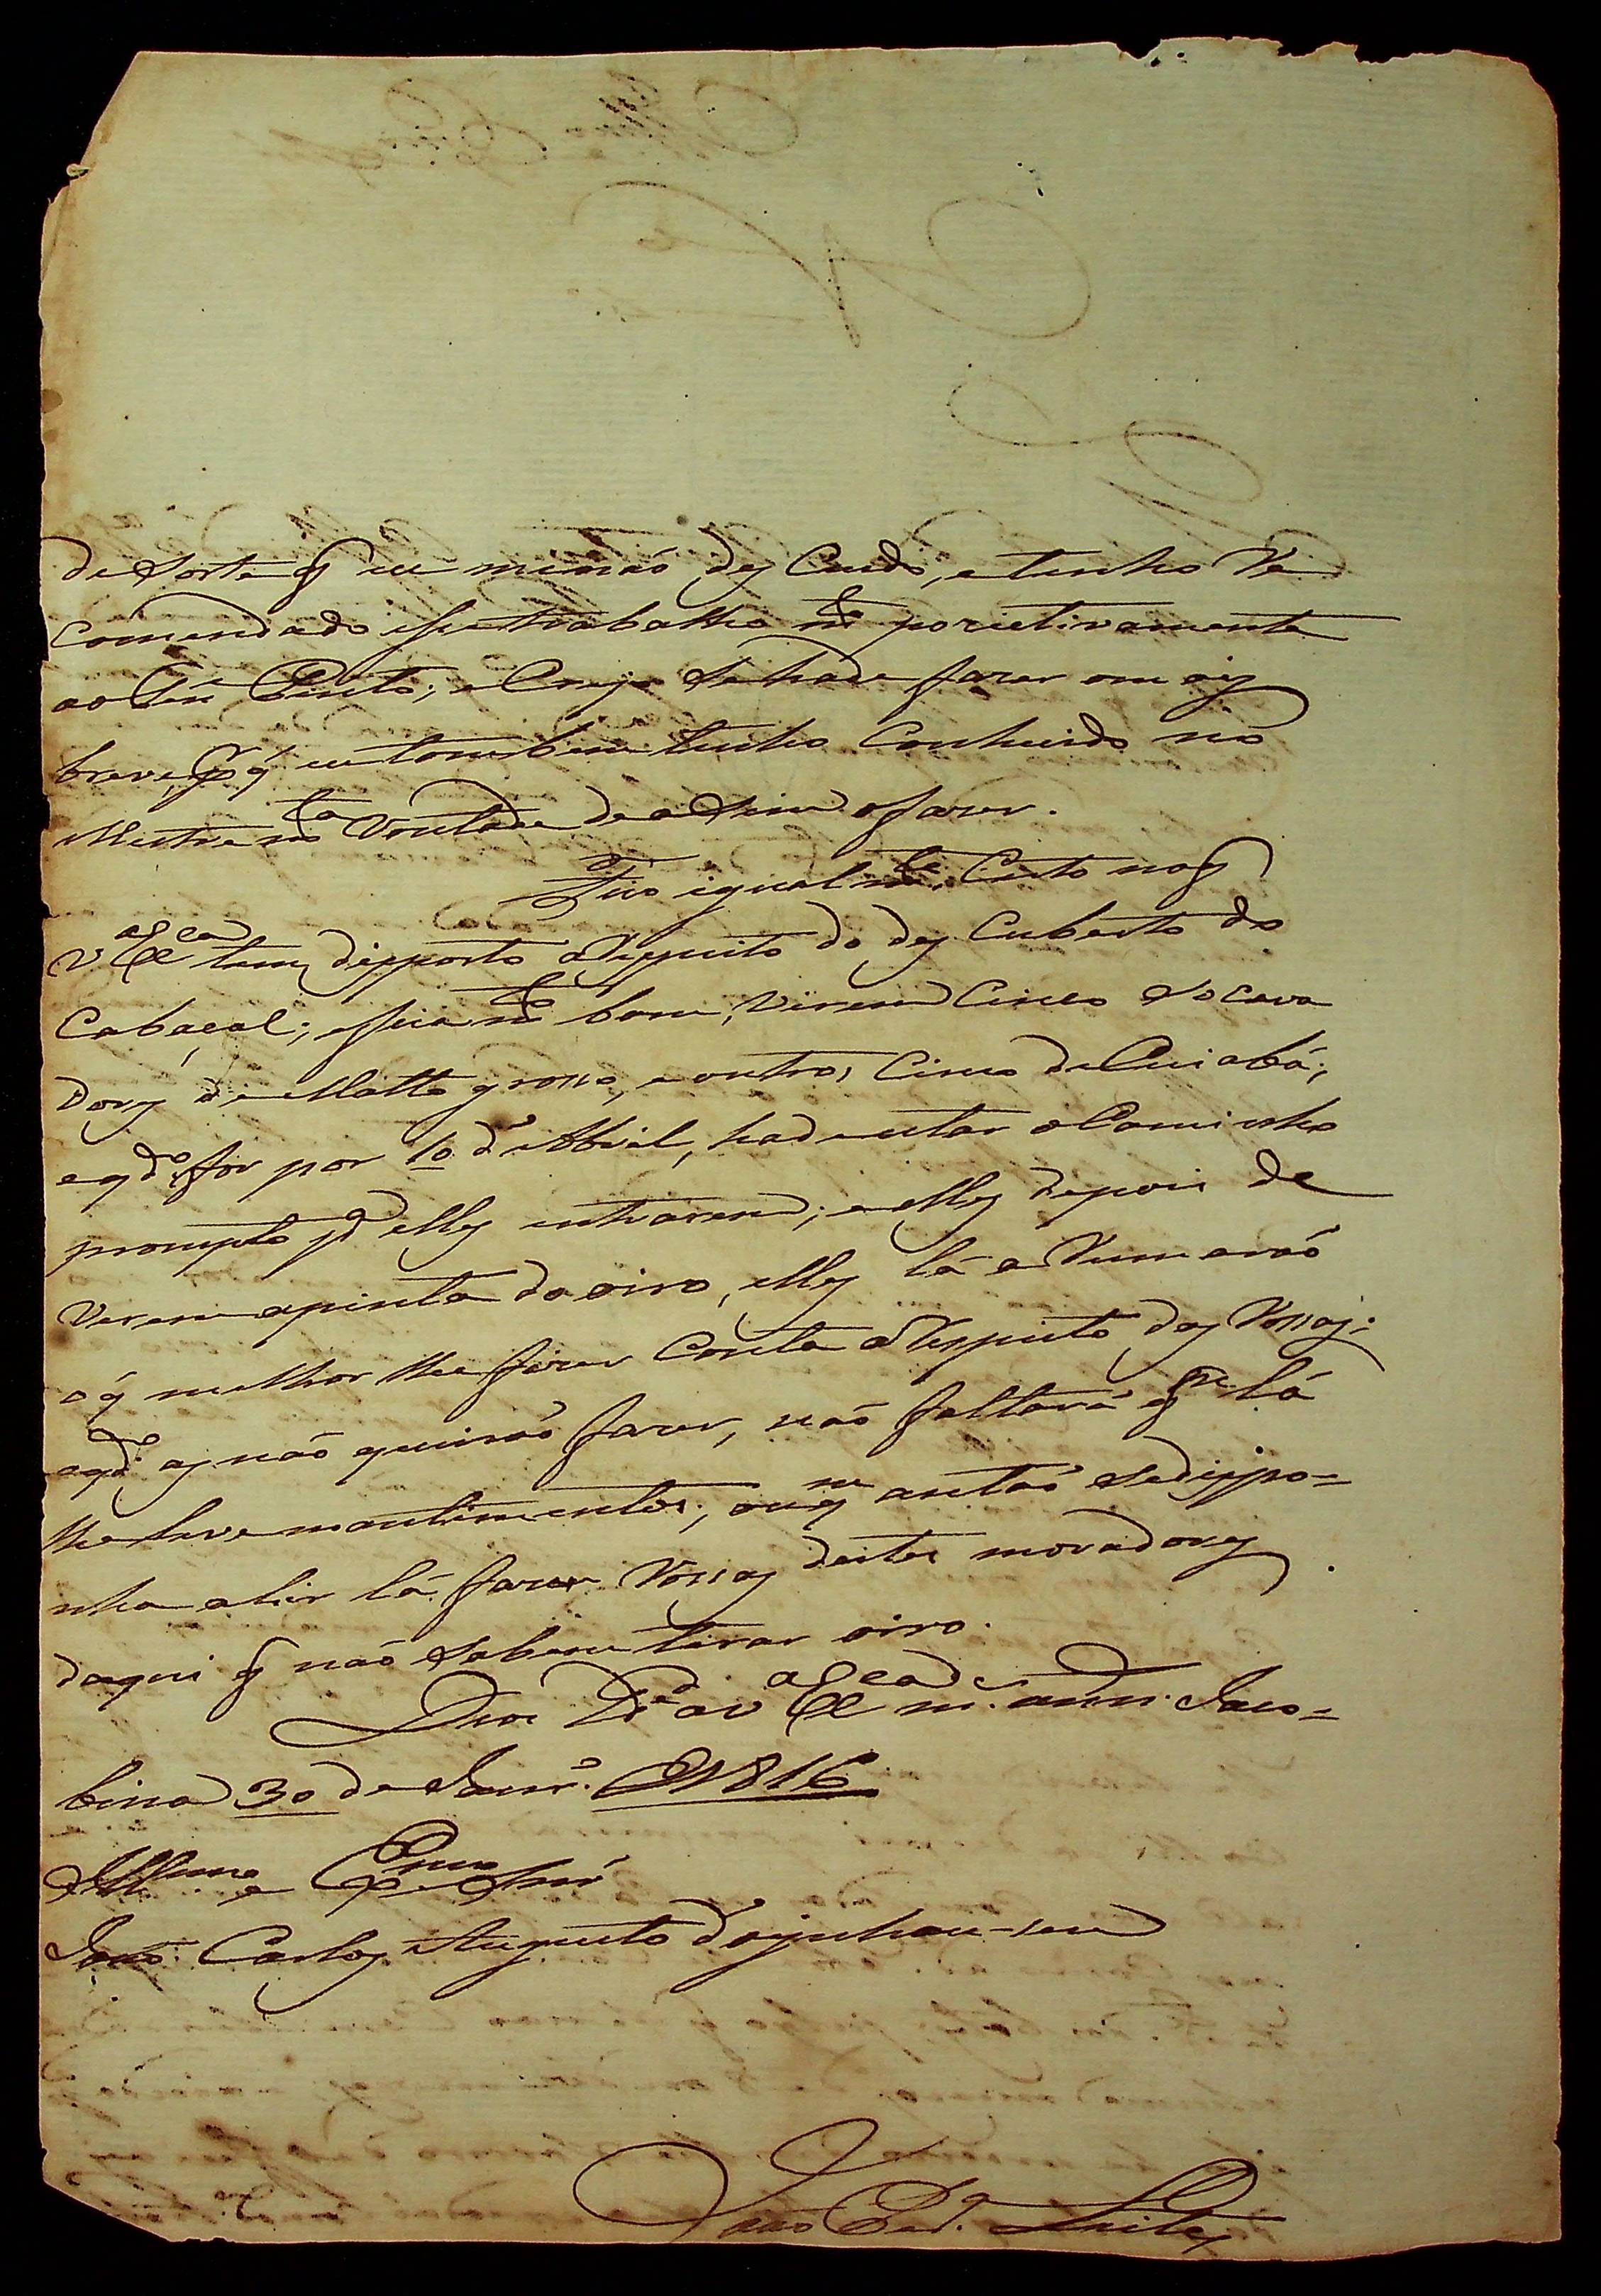 de sorte q̃ eu me não des Cuido, e tenho Re
comendado esse trabalho m.to pozitivamente
ao Ten Pinto; e Creyo se hade fazer o mais
breve, p q̃ eu tambem tenho Conhecido no
Mestre m.ta Vontade de assim o fazer.
Fico igualm.te Certo no q̃
V Ex.a tem disposto a Respeito do des Cuberto do
Cabaçal; e fica m.to bom, Virem Cinco Socava
dores de Matto grosso, e outros Cinco de Cuiabá;
e q.do for por 10 de Abril, hade estar o Caminho
prompto p.a elles entrarem; e elles depois de
Verem apinta do oiro, elles lá a Rumarão
o q̃ melhor lhe fizer Conta a Respeito das Rossas;
e q.do as não queirão fazer, não faltará q.m lá
lhe leve mantimentos; ou q.m antão se dispo=
nha a hir lá fazer Rossas destes moradores
daqui q̃ não sabem tirar oiro.
Deos G.de a V Ex.a m. ann. Jaco=
bina 30 de Janr.o de 1816
Ill.mo e Ex.mo Snr
João Carlos Augusto d'oeynhau-sen
João Per.a Leite